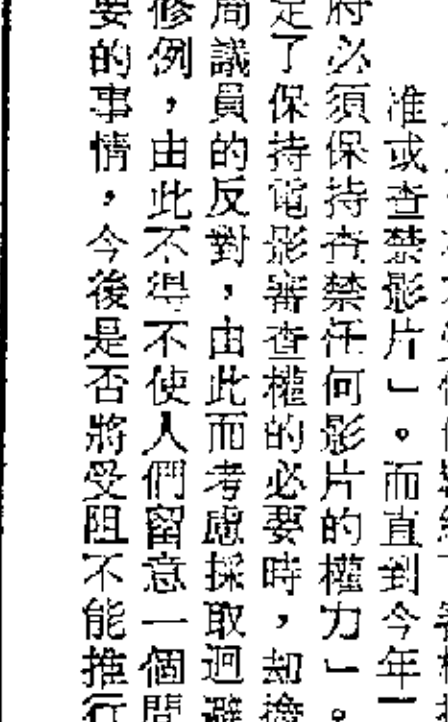 准或查禁影片」。而直到今年
府必須保持查禁任何影片的權力」。
定了保持電影審查權的必要時，却擔
局議員的反對，由此而考慮採取迴避
修例，由此不得不使人們留意一個問
要的事情，今後是否將受阻不能推行